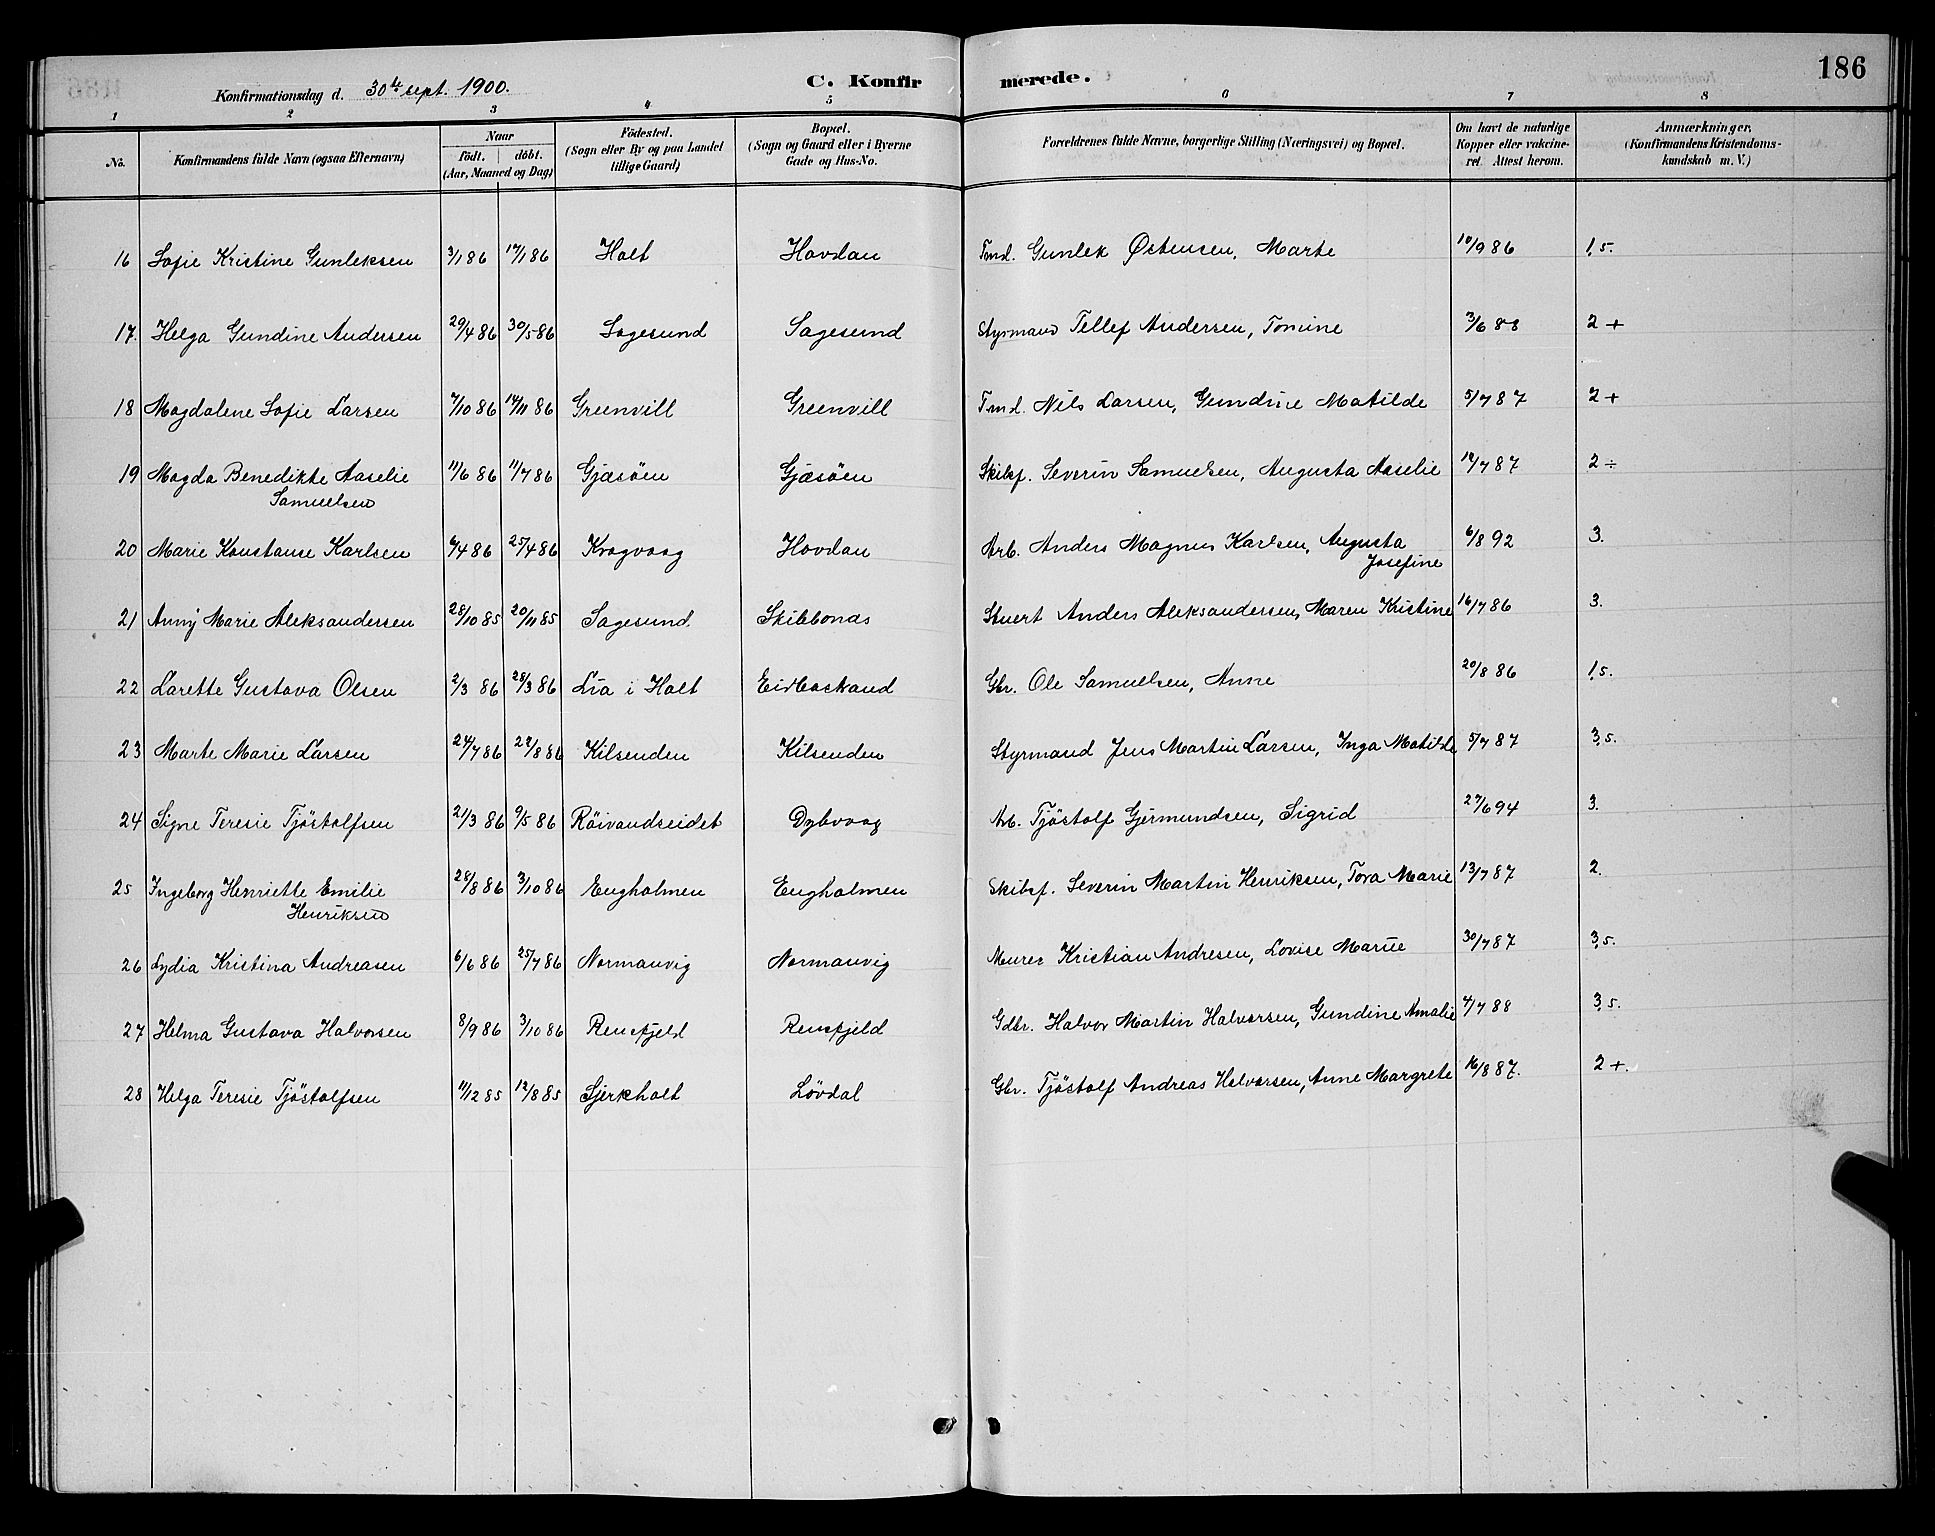 186
Konfirmationsdag d. 30te sept. 1900. C. Konfirmerede.
1 2 3 4 5 6 7 8
No. Konfirmandens fulde Navn (ogsaa Efternavn) Naar födt. döbt. (Aar, Maaned og Dag) Födested. (Sogn eller By og paa Landet tillige Gaard) Bopæl. (Sogn og Gaard eller i Byerne Gade og Hus-No. Forældrenes fulde Navne, borgerlige Stilling (Næringsvei) og Bopæl. Om havt de naturlige Kopper eller vakcineret. Attest herom. Anmærkninger. (Konfirmandens Kristendomskundskab m. V.)
16 Sofie Kristine Gunleksen 3/1 86 17/1 86 Holt Hovdan Tmd. Gunlek Østensen, Marte 10/9 86 1,5.
17. Helga Gundine Andersen 29/4 86 30/5 86 Sagesund Sagesund Styrmand Tellef Andersen, Tomine 3/6 88 2+
18 Magdalene Sofie Larsen 7/10 86 14/11 86 Greenvill Greenvill Tmd. Nils Larsen, Gundine Matilde 5/7 87 2+
19 Magda Benedikte Aaselie Samuelsen 11/6 86 11/7 86 Gjæsöen Gjæsöen Skibsf. Severin Samuelsen, Augusta Aaselie 12/7 87 2÷
20 Marie Konstanse Karlsen 6/4 86 25/4 86 Kragvaag Hovdan Arb. Anders Magnus Karlsen, Augusta Josefine 6/8 92 3.
21 Anny Marie Aleksandersen 28/10 85 20/11 85 Sagesund Skibbonas Stuert Anders Aleksandersen, Maren Kristine 16/7 86 3.
22 Larette Gustava Olsen 2/3 86 28/3 86 Lia i Holt Eidbostrand Gbr. Ole Samuelsen, Anne 20/8 86 1,5.
23 Marte Marie Larsen 24/7 86 22/8 86 Kilsenden Kilsenden Styrmand Jens Martin Larsen, Inga Matilde 5/7 87 3,5.
24 Signe Teresie Tjöstolfsen 21/3 86 9/5 86 Röivandseidet Dybvaag Arb. Tjöstolf Gjermundsen, Sigrid 27/6 94 3.
25 Ingeborg Henriette Emilie Henriksen 28/8 86 3/10 86 Engholmen Engholmen Skibsf. Severin Martin Henriksen, Tora Marie 13/7 87 2.
26 Lydia Kristina Andreasen 6/6 86 25/7 86 Normanvig Normanvig Murer Kristian Andresen, Lovise Marie 30/7 87 3,5.
27 Helma Gustava Halvorsen 8/9 86 3/10 86 Rensfjeld Rensfjeld Gdbr. Halvor Martin Halvorsen, Gundine Amalie 4/7 88 3,5.
28 Helga Teresie Tjöstolfsen 11/12 85 12/8 85 Sjerkholt Lövdal Gbr. Tjöstolf Andreas Halvorsen, Anne Margrete 16/8 87. 2+.